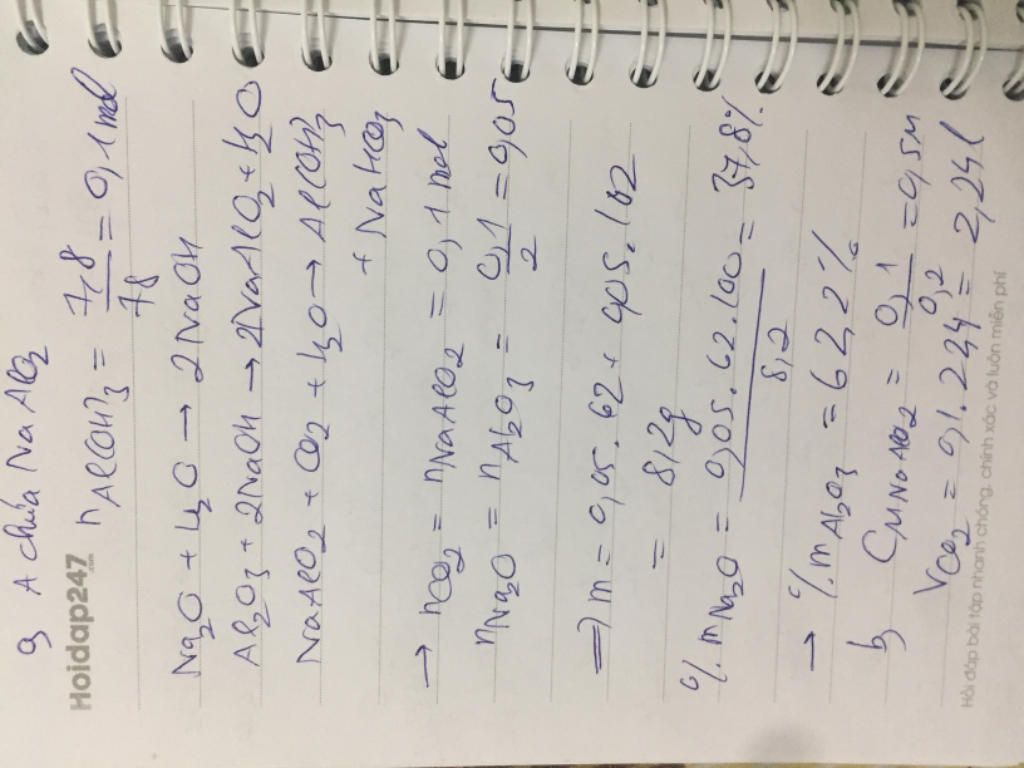 a) A chứa NaAlO2
Hoidap247
.com
nAl(OH)3 = 7,8/78 = 0,1 mol
Na2O + H2O → 2NaOH
Al2O3 + 2NaOH → 2NaAlO2 + H2O
NaAlO2 + CO2 + H2O → Al(OH)3
+ NaHCO3
→ nCO2 = nNaAlO2 = 0,1 mol
nNa2O = nAl2O3 = 0,1/2 = 0,05
=> m = 0,05.62 + 0,05.102
= 8,2g
%mNa2O = 0,05.62.100/8,2 = 37,8%
→ %mAl2O3 = 62,2%
b) CMNaAlO2 = 0,1/0,2 = 0,5M
VCO2 = 0,1.22,4 = 2,24l
Hỏi đáp bài tập nhanh chóng, chính xác và luôn miễn phí